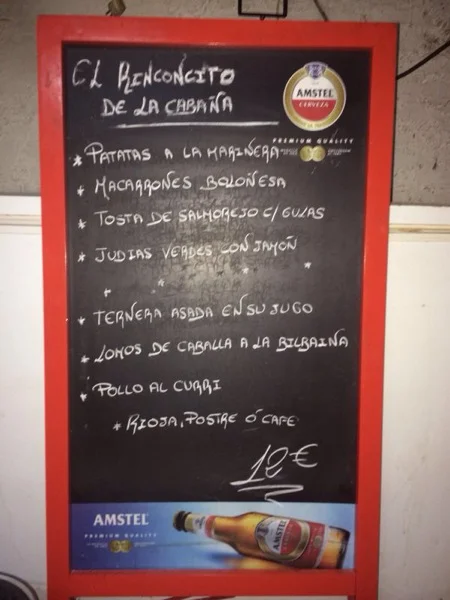 EL RINCONCITO
DE LA CABAÑA
AMSTEL
CERVEZA
PREMIUM QUALITY
* PATATAS A LA MARINERA
* MACARRONES BOLOÑESA
* TOSTA DE SALMOREJO C/ GULAS
* JUDIAS VERDES CON JAMÓN
* TERNERA ASADA EN SU JUGO
* LOMOS DE CABALLA A LA BILBAINA
* POLLO AL CURRI
* RIOJA, POSTRE Ó CAFE
12€
AMSTEL
PREMIUM QUALITY
AMSTEL